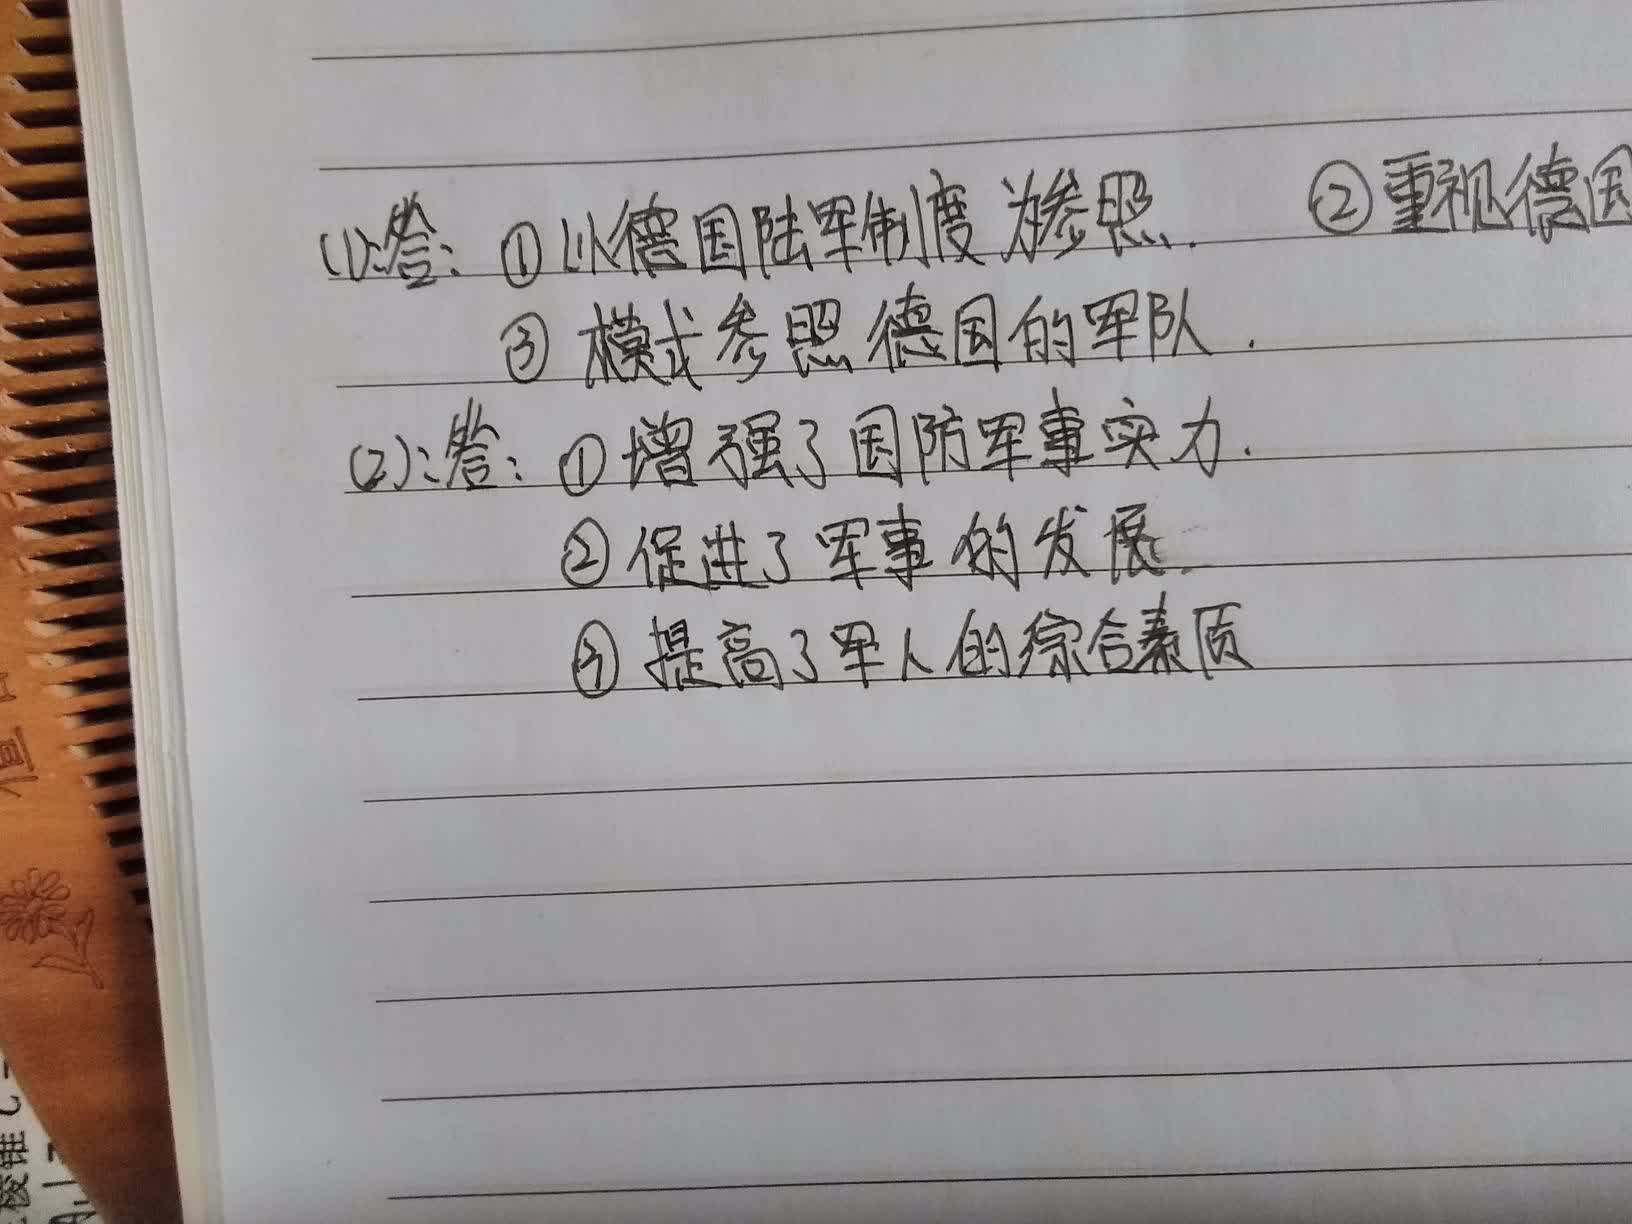 (1):答：①以德国陆军制度为参照. ②重视德国
③模式参照德国的军队.
(2):答：①增强了国防军事实力.
②促进了军事的发展.
③提高了军人的综合素质